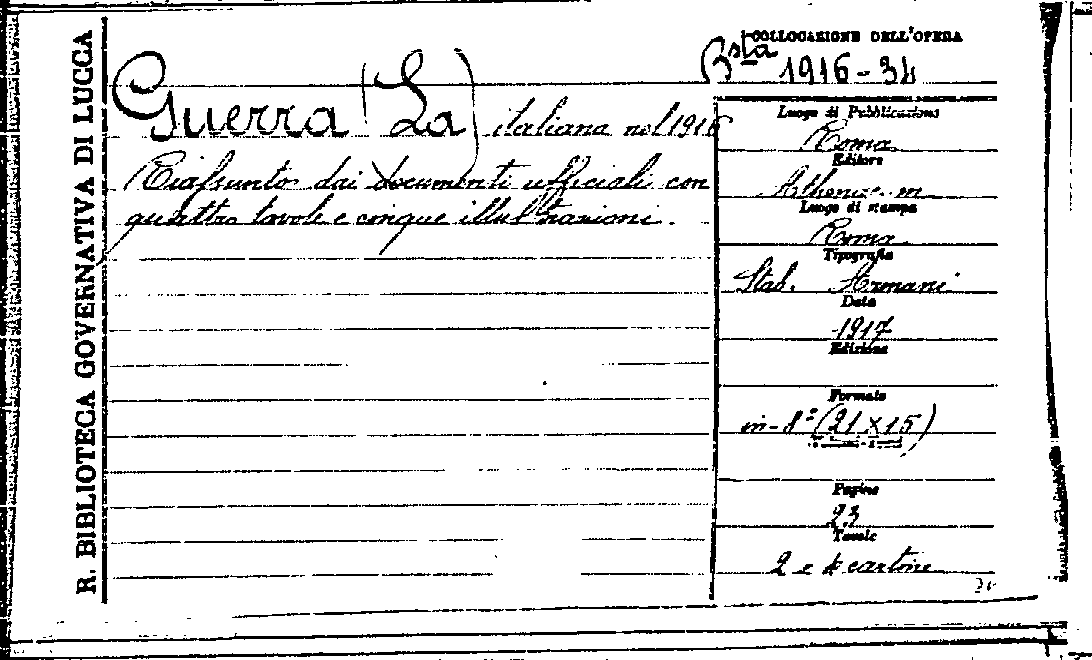 R. BIBLIOTECA GOVERNATIVA DI LUCCA
COLLOCAZIONE DELL'OPERA
Bsta 1916-34
Guerra (La) italiana nel 1916
Riassunto dai documenti ufficiali con
quattro tavole e cinque illustrazioni.
Luogo di Pubblicazione
Roma
Editore
Luogo di stampa
Roma
Tipografia
Stab. Armani
Data
1917
Edizione
Formato
in-8° (21 x 15)
Pagine
23
Tavole
2 e 4 cartine